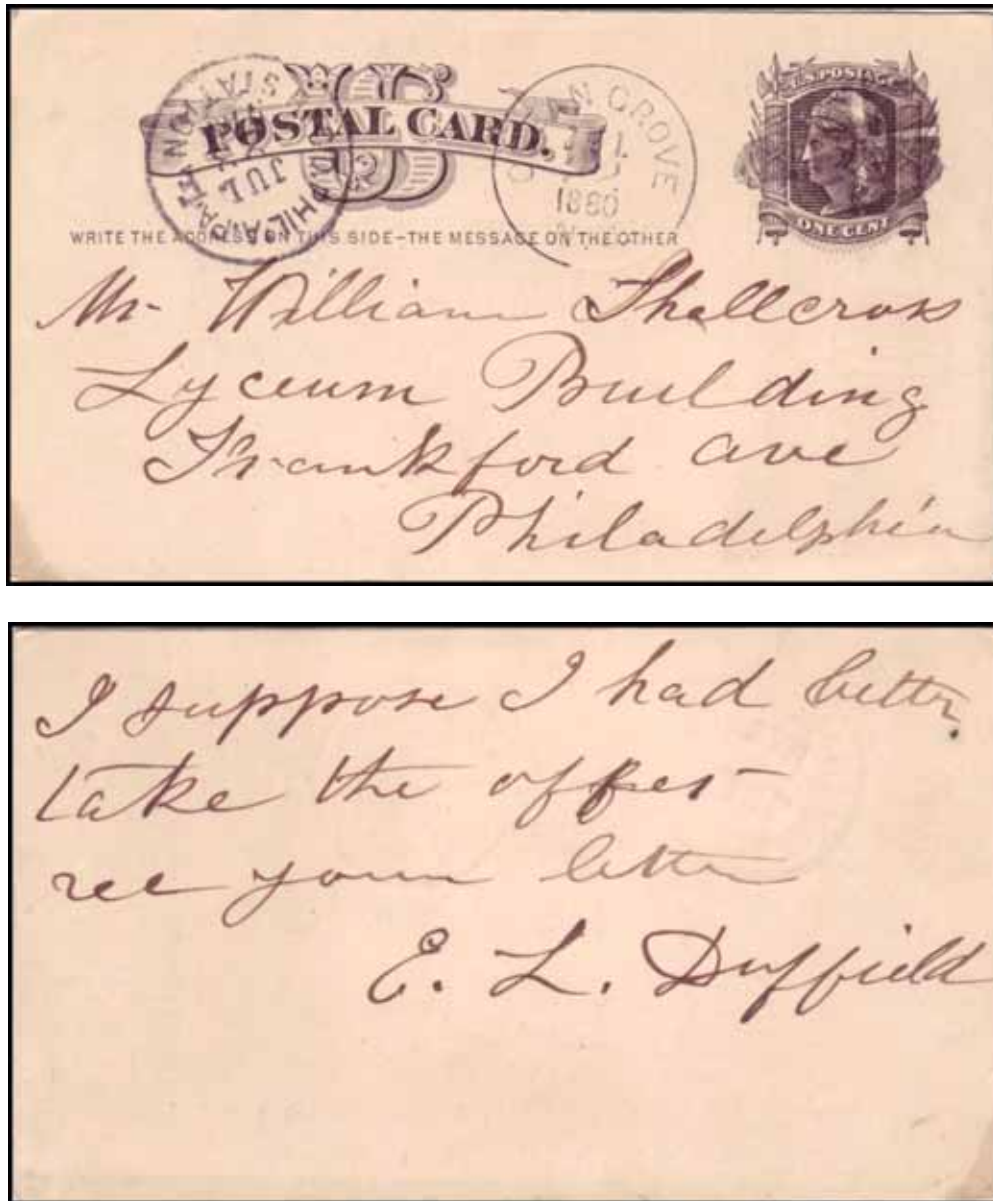 U.S. POSTAGE
POSTAL CARD.
US
N GROVE
1880
STATION
JUL
PHILADA
ONE CENT
WRITE THE ADDRESS ON THIS SIDE–THE MESSAGE ON THE OTHER
Mr- William Shallcross
Lyceum Building
Frankford ave
Philadelphia
I suppose I had better
take the offer –
rec your letter
E. L. Duffield